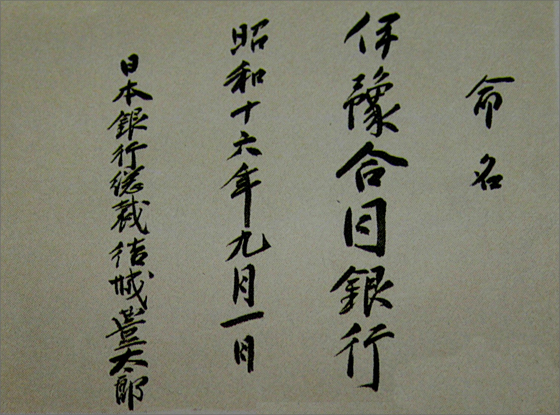 命名
伊豫合同銀行
昭和十六年九月一日
日本銀行総裁結城豊太郎